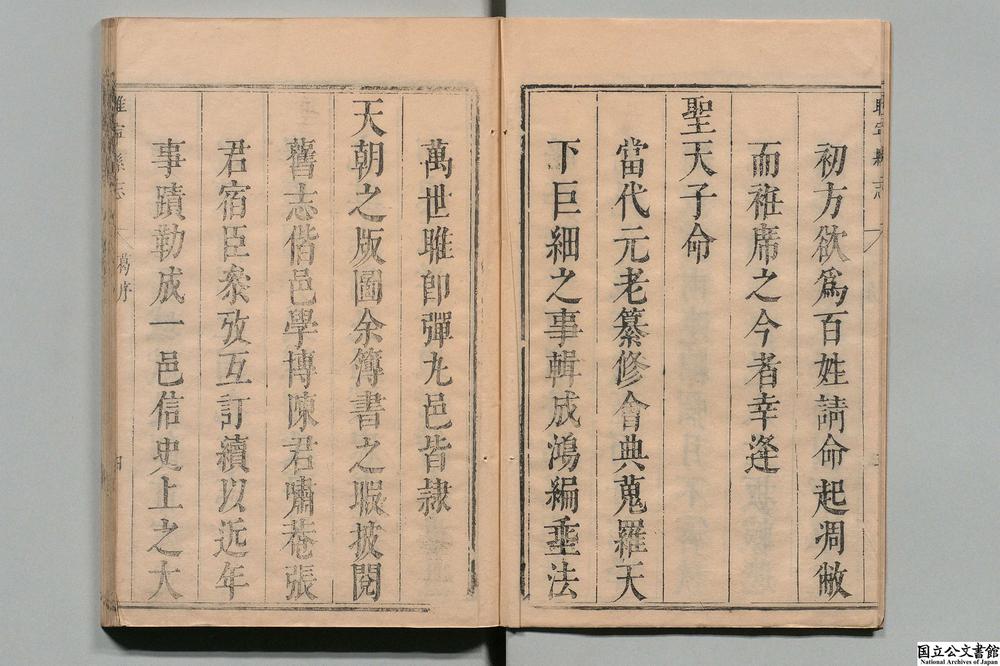 初方欲爲百姓請命起凋敝
而袵席之今者幸逢
聖天子命
當代元老纂修會典蒐羅天
下巨細之事輯成鴻編垂法
萬世睢卽彈丸邑皆隷
天朝之版圖余簿書之暇披閱
舊志偕邑學博陳君嘯菴張
君宿臣叅攷互訂續以近年
事蹟勒成一邑信史上之大
睢寧縣志
葛序
四
国立公文書館
National Archives of Japan